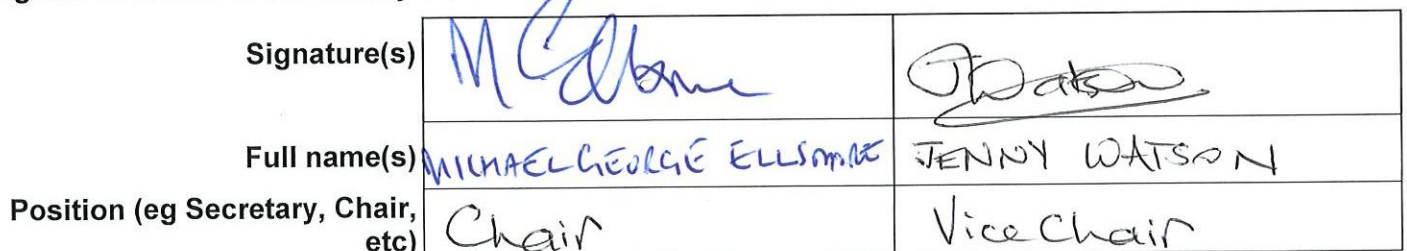 Signature(s)
J Watson
Full name(s) MICHAEL GEORGE ELLSMORE JENNY WATSON
Position (eg Secretary, Chair, Chair Vice Chair
etc)